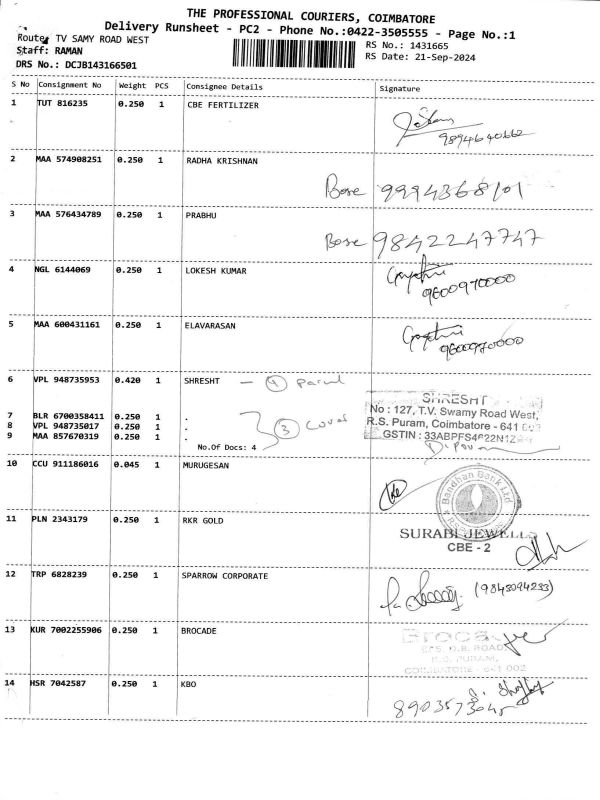 THE PROFESSIONAL COURIERS, COIMBATORE
Delivery Runsheet - PC2 - Phone No.:0422-3505555 - Page No.:1
Route: TV SAMY ROAD WEST
Staff: RAMAN
DRS No.: DCJB143166501
RS No.: 1431665
RS Date: 21-Sep-2024
S No Consignment No Weight PCS Consignee Details Signature
1 TUT 816235 0.250 1 CBE FERTILIZER
9894640662
2 MAA 574908251 0.250 1 RADHA KRISHNAN
Bose 9994368101
3 MAA 576434789 0.250 1 PRABHU
Bose 9842247747
4 NGL 6144069 0.250 1 LOKESH KUMAR
Gayathri
9600970000
5 MAA 600431161 0.250 1 ELAVARASAN
Gayathri
9600970000
6 VPL 948735953 0.420 1 SHRESHT - 4 Parcel
SHRESHT
No : 127, T.V. Swamy Road West,
R.S. Puram, Coimbatore - 641
GSTIN : 33ABPFS4622N1Z
7 BLR 6700358411 0.250 1 .
8 VPL 948735017 0.250 1 . 3 Cover
9 MAA 857670319 0.250 1 .
No.Of Docs: 4
10 CCU 911186016 0.045 1 MURUGESAN
Bandhan Bank Ltd
11 PLN 2343179 0.250 1 RKR GOLD
SURABI JEWELLS
CBE - 2
12 TRP 6828239 0.250 1 SPARROW CORPORATE
(9843094233)
13 KUR 7002255906 0.250 1 BROCADE
D.B. ROAD
R.S. PURAM,
COIMBATORE - 641 002
14 HSR 7042587 0.250 1 KBO
8903573045